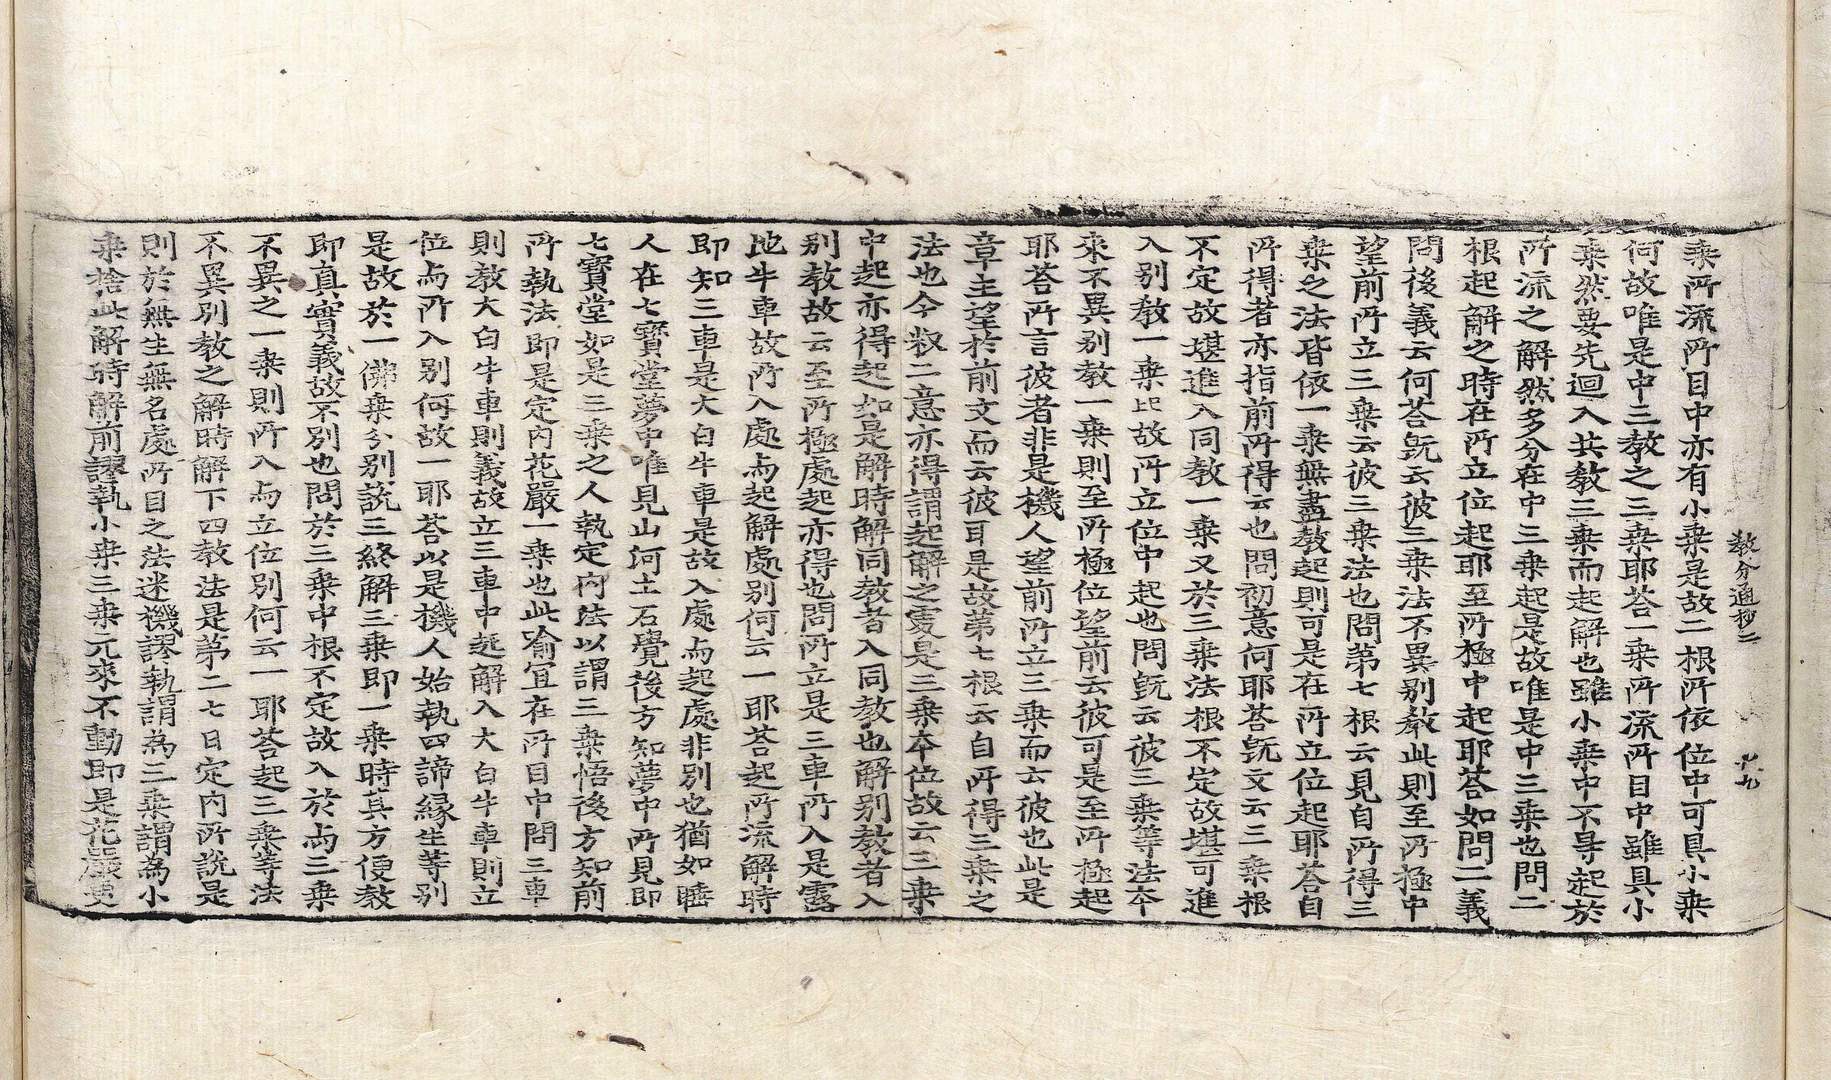 敎分通抄二
乗所流所目中亦有小乗是故二根所依位中可具小乗
何故唯是中三敎之三乗耶荅一乗所流所目中雖具小
乗然要先迴入共敎三乗而起解也雖小乗中不㝵起於
所流之解然多分在中三乗起是故唯是中三乗也問二
根起解之時在所立位起耶至所極中起耶荅如問二義
問後義云何荅旣云彼三乗法不異别敎此則至所極中
望前所立三乗云彼三乗法也問第七根云見自所得三
乗之法皆依一乗無盡敎起則可是在所立位起耶荅自
所得者亦指前所得云也問初意何耶荅旣文云三乗根
不定故堪進入同敎一乗又於三乗法根不定故堪可進
入别敎一乗比故所立位中起也問旣云彼三乗等法本
來不異别敎一乗則至所極位望前云彼可是至所極起
耶荅所言彼者非是機人望前所立三乗而云彼也此是
章主望於前文而云彼耳是故第七根云自所得三乗之
法也今叙二意亦得謂起解之處是三乗本位故云三乗
中起亦得起如是解時解同敎者入同敎也解别敎者入
别敎故云至所極處起亦得也問所立是三車所入是露
地牛車故所入處与起解處别何云一耶荅起所流解時
即知三車是大白牛車是故入處与起處非别也猶如睡
人在七寳堂夢中唯見山河土石覺後方知夢中所見即
七寳堂如是三乗之人執定内法以謂三乗悟後方知前
所執法即是定内花嚴一乗也此喩冝在所目中問三車
則敎大白牛車則義故立三車中起解入大白牛車則立
位与所入别何故一耶荅以是機人始執四諦緣生等别
是故於一佛乗分别說三終解三乗即一乗時其方便敎
即真實義故不别也問於三乗中根不定故入於与三乗
不異之一乗則所入与立位别何云一耶荅起三乗等法
不異别敎之解時解下四敎法是第二七日定内所說是
則於無生無名處所目之法迷機謬執謂為三乗謂為小
乗捨此解時解前謬執小乗三乗元來不動即是花嚴更